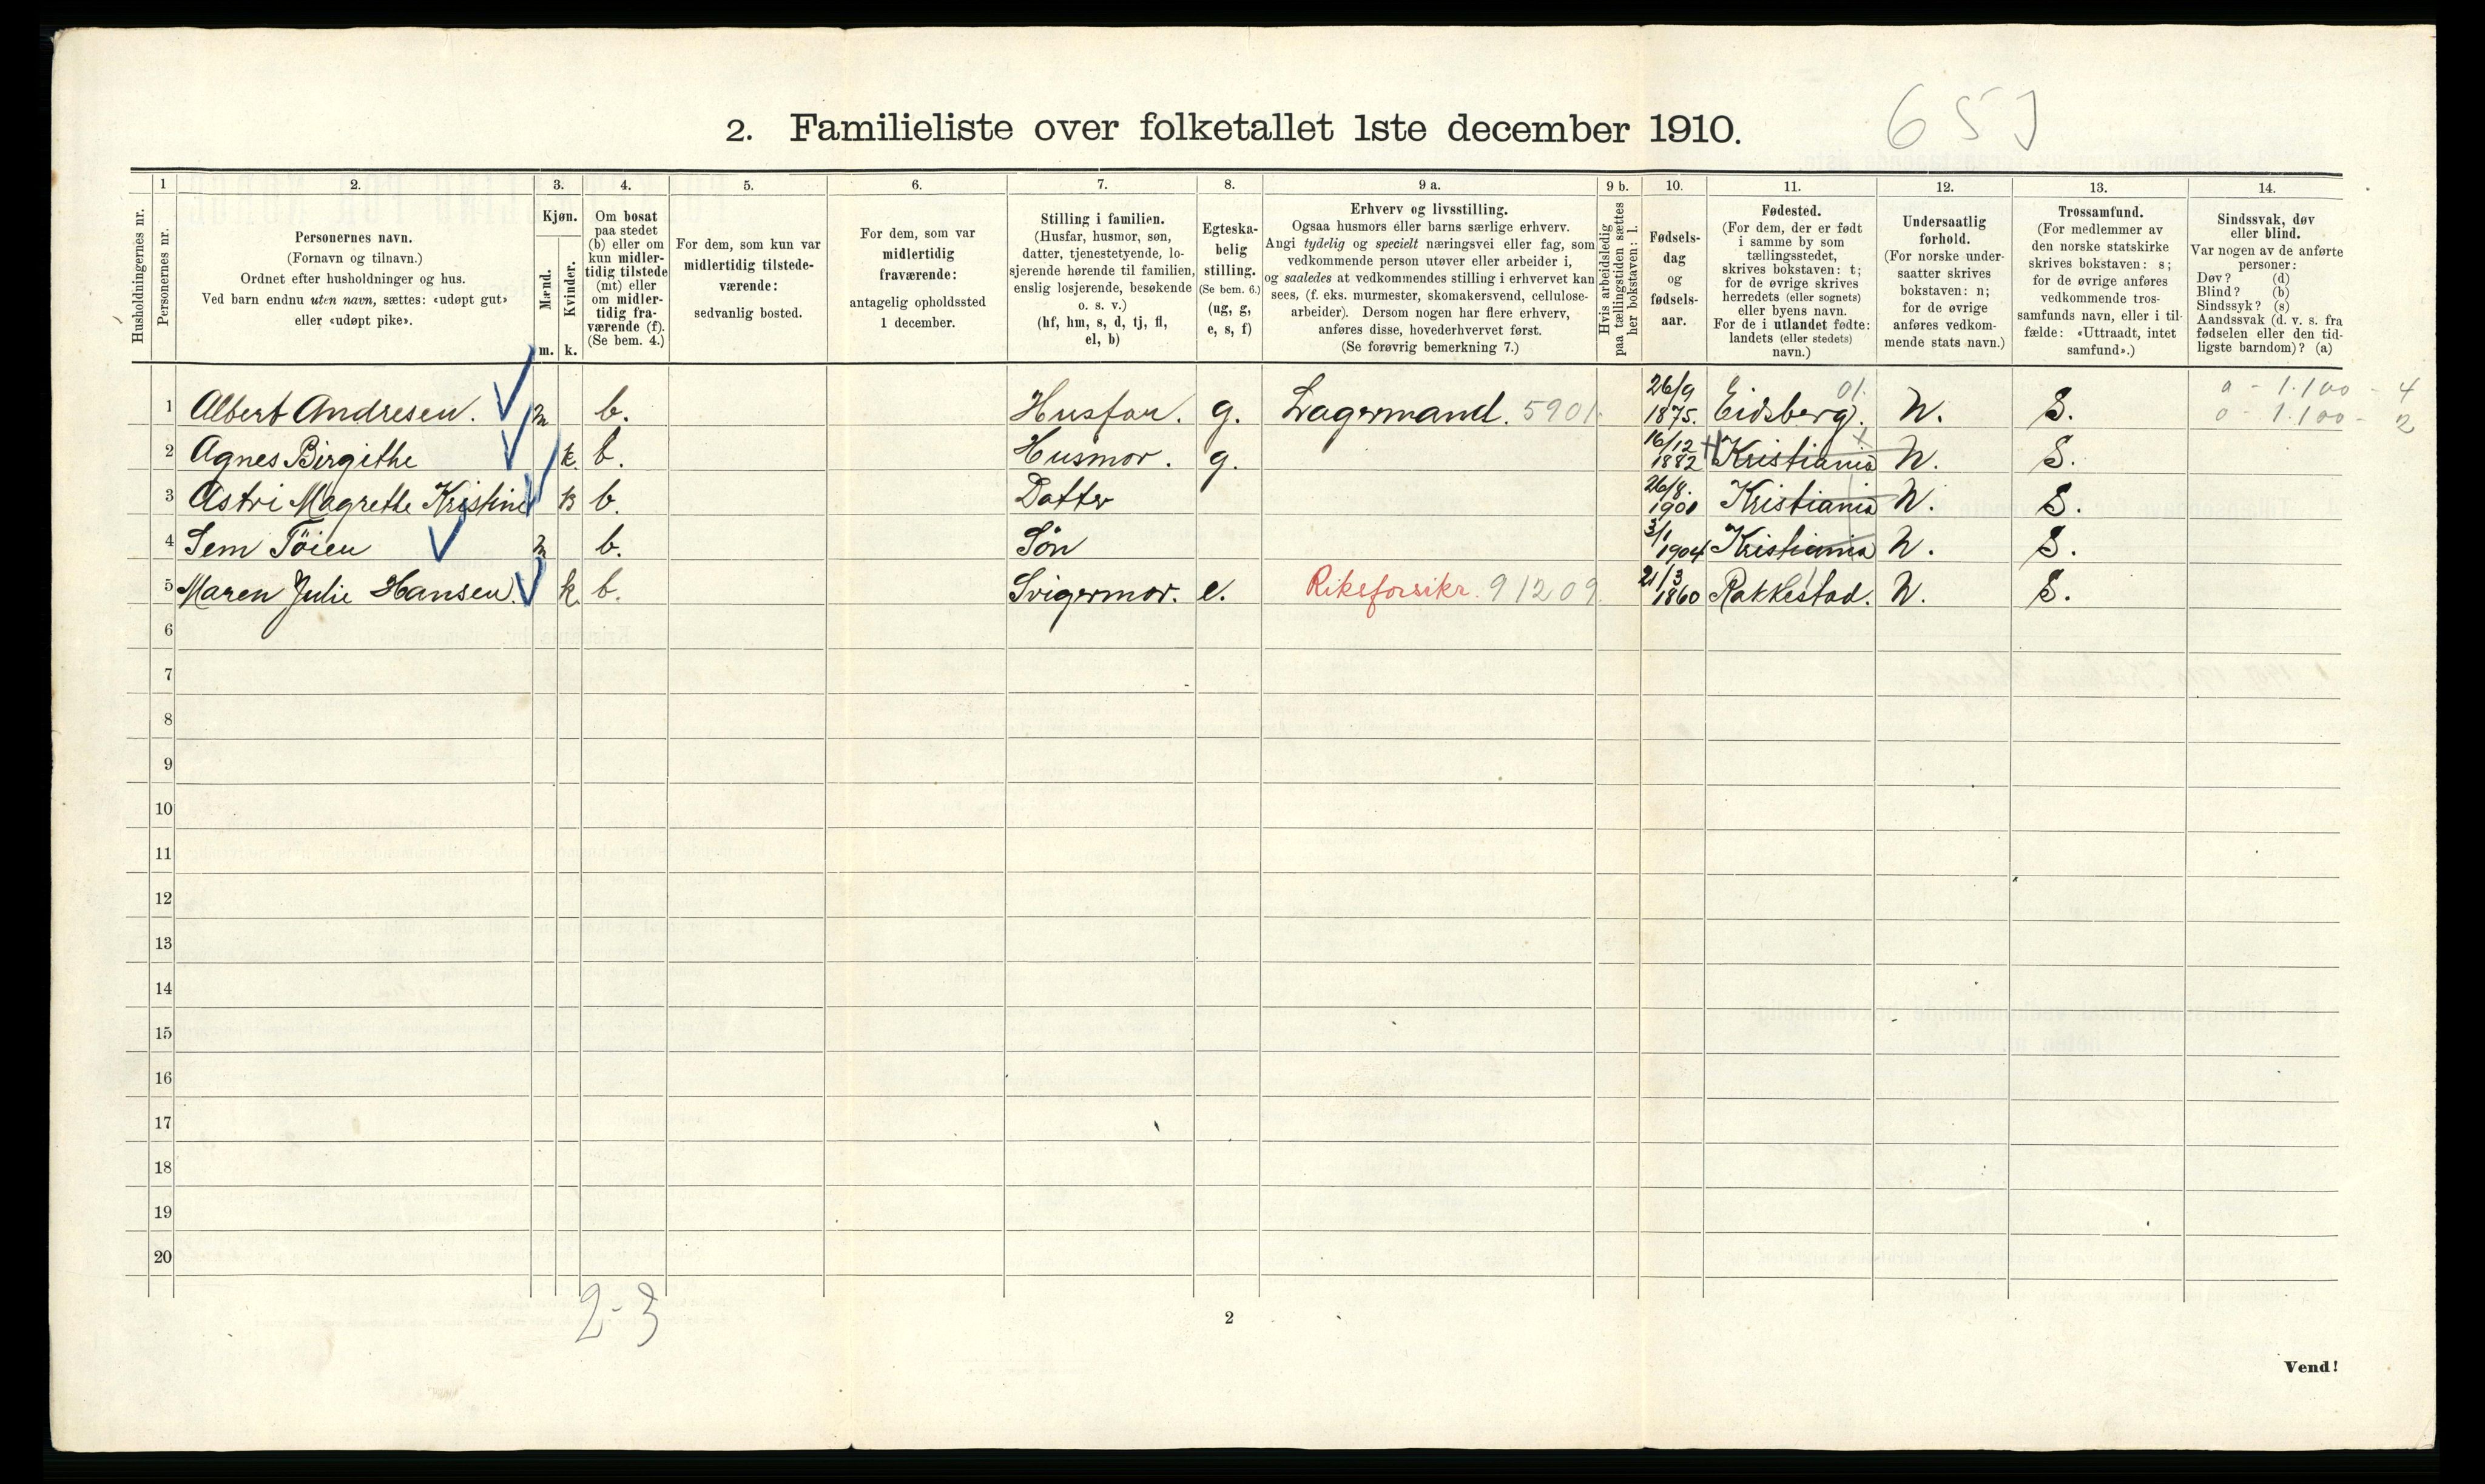 2. Familieliste over folketallet 1ste december 1910.
Husholdningernes nr.
1
Personernes nr.
2.
Personernes navn.
(Fornavn og tilnavn.)
Ordnet efter husholdninger og hus.
Ved barn endnu uten navn, sættes: «udøpt gut»
eller «udøpt pike».
3.
Kjøn.
Mænd.
Kvinder.
m. k.
4.
Om bosat
paa stedet
(b) eller om
kun midler-
tidig tilstede
(mt) eller
om midler-
tidig fra-
værende (f).
(Se bem. 4.)
5.
For dem, som kun var
midlertidig tilstede-
værende:
sedvanlig bosted.
6.
For dem, som var
midlertidig
fraværende:
antagelig opholdssted
1 december.
7.
Stilling i familien.
(Husfar, husmor, søn,
datter, tjenestetyende, lo-
sjerende hørende til familien,
enslig losjerende, besøkende
o. s. v.)
(hf, hm, s, d, tj, fl,
el, b)
8.
Egteska-
belig
stilling.
(Se bem. 6.)
(ug, g,
e, s, f)
9 a.
Erhverv og livsstilling.
Ogsaa husmors eller barns særlige erhverv.
Angi tydelig og specielt næringsvei eller fag, som
vedkommende person utøver eller arbeider i,
og saaledes at vedkommendes stilling i erhvervet kan
sees, (f. eks. murmester, skomakersvend, cellulose-
arbeider). Dersom nogen har flere erhverv,
anføres disse, hovederhvervet først.
(Se forøvrig bemerkning 7.)
9 b.
Hvis arbeidsledig
paa tællingstiden sættes
her bokstaven: l.
10.
Fødsels-
dag
og
fødsels-
aar.
11.
Fødested.
(For dem, der er født
i samme by som
tællingsstedet,
skrives bokstaven: t;
for de øvrige skrives
herredets (eller sognets)
eller byens navn.
For de i utlandet fødte:
landets (eller stedets)
navn.)
12.
Undersaatlig
forhold.
(For norske under-
saatter skrives
bokstaven: n;
for de øvrige
anføres vedkom-
mende stats navn.)
13.
Trossamfund.
(For medlemmer av
den norske statskirke
skrives bokstaven: s;
for de øvrige anføres
vedkommende tros-
samfunds navn, eller i til-
fælde: «Uttraadt, intet
samfund».)
14.
Sindssvak, døv
eller blind.
Var nogen av de anførte
personer:
Døv? (d)
Blind? (b)
Sindssyk? (s)
Aandssvak (d. v. s. fra
fødselen eller den tid-
ligste barndom)? (a)
1 Albert Andresen. m b. Husfar. g. Lagermand. 5901. 26/9 1875. Eidsberg. 01. N. S. 0 - 1.100 - 4
0 - 1.100 - 2
2 Agnes Birgithe k. b. Husmor. g. 16/12 1882 Kristiania N. S.
3 Astri Magrethe Kristine k b. Datter 26/8. 1901 Kristiania N. S.
4 Sem Töien m b. Sön 3/1 1904 Kristiania N. S.
5 Maren Julie Hansen. k. b. Svigermor. e. Rikeforsikr. 91209. 21/3 1860 Rakkestad. N. S.
6
7
8
9
10
11
12
13
14
15
16
17
18
19
20
2-3
2
Vend!